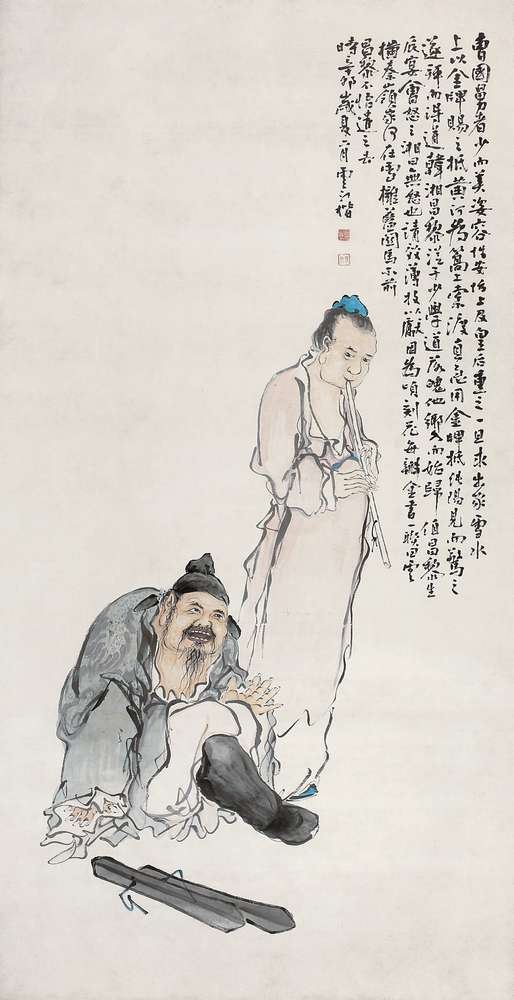 曹國舅者少而美姿容性安恬上及皇后重之一旦求出家雲水
上以金牌賜之抵黃河為篙工索渡直急用金牌抵純陽見而驚之
遂拜而得道韓湘昌黎從子少學道落魄他鄉久而始歸值昌黎生
辰宴會怒之湘曰無怒也請效薄技以獻因為頃刻花每瓣金書一聯曰雲
橫秦嶺家何在雪擁藍關馬不前
昌黎不悟遣之去
時辛卯歲夏六月